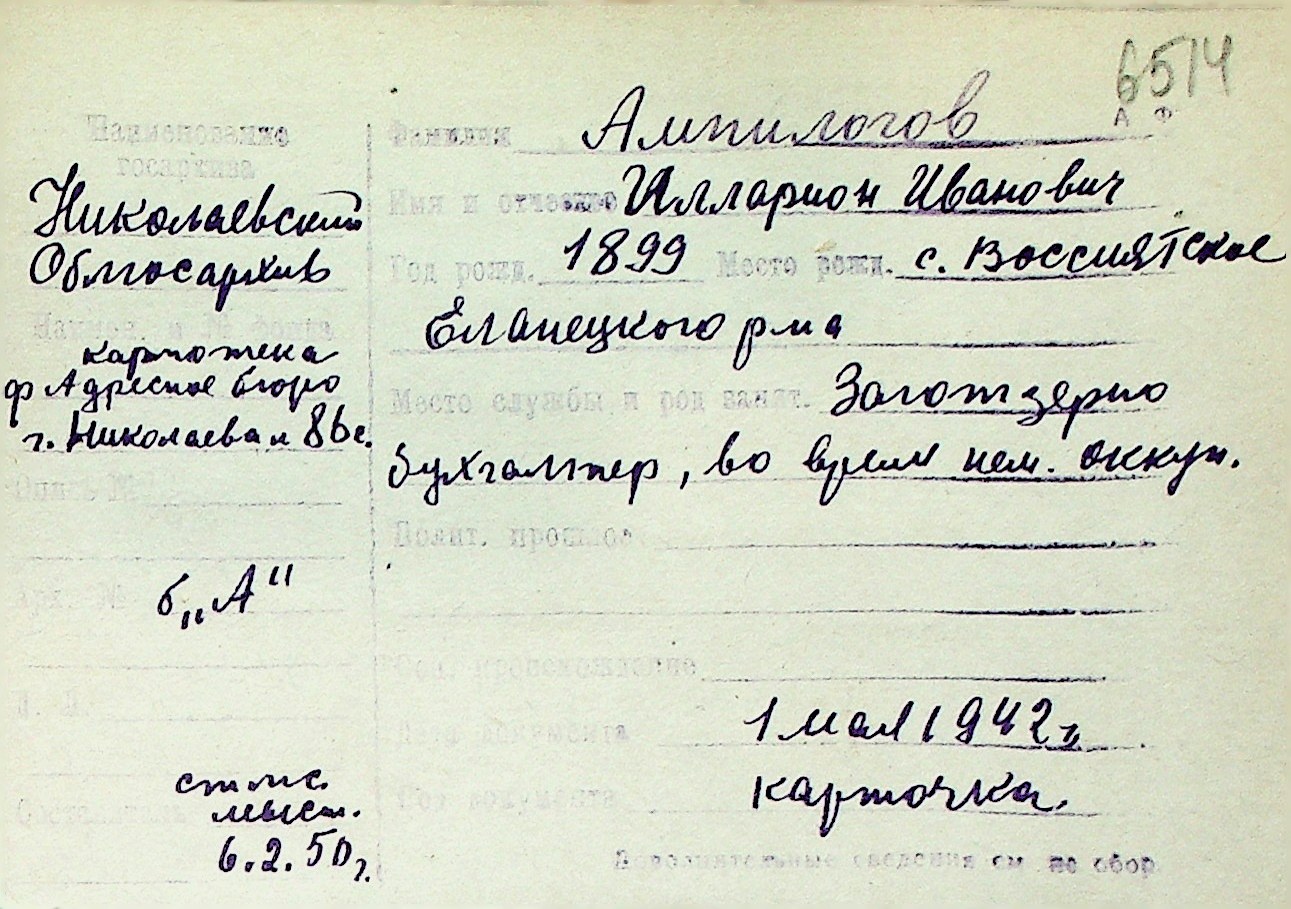 6514
А Ф
Наименование
госархива
Николаевский
Облгосархив
Наимен. и № фонда
картотека
ф Адресное бюро
г. Николаева
Опись №
Арх. № б „А"
Л. Л.
Составитель
6.2.50 г.
Фамилия Ампилогов
Имя и отчество Илларион Иванович
Год рожд. 1899 Место рожд. с. Воссиятское
Еланецкого р-на
Место службы и род занят. Заготзерно
бухгалтер, во время нем. оккуп.
Полит. прошлое
Соц. происхождение
Дата документа 1 мая 1942 г.
Род документа карточка.
Дополнительные сведения см на обор